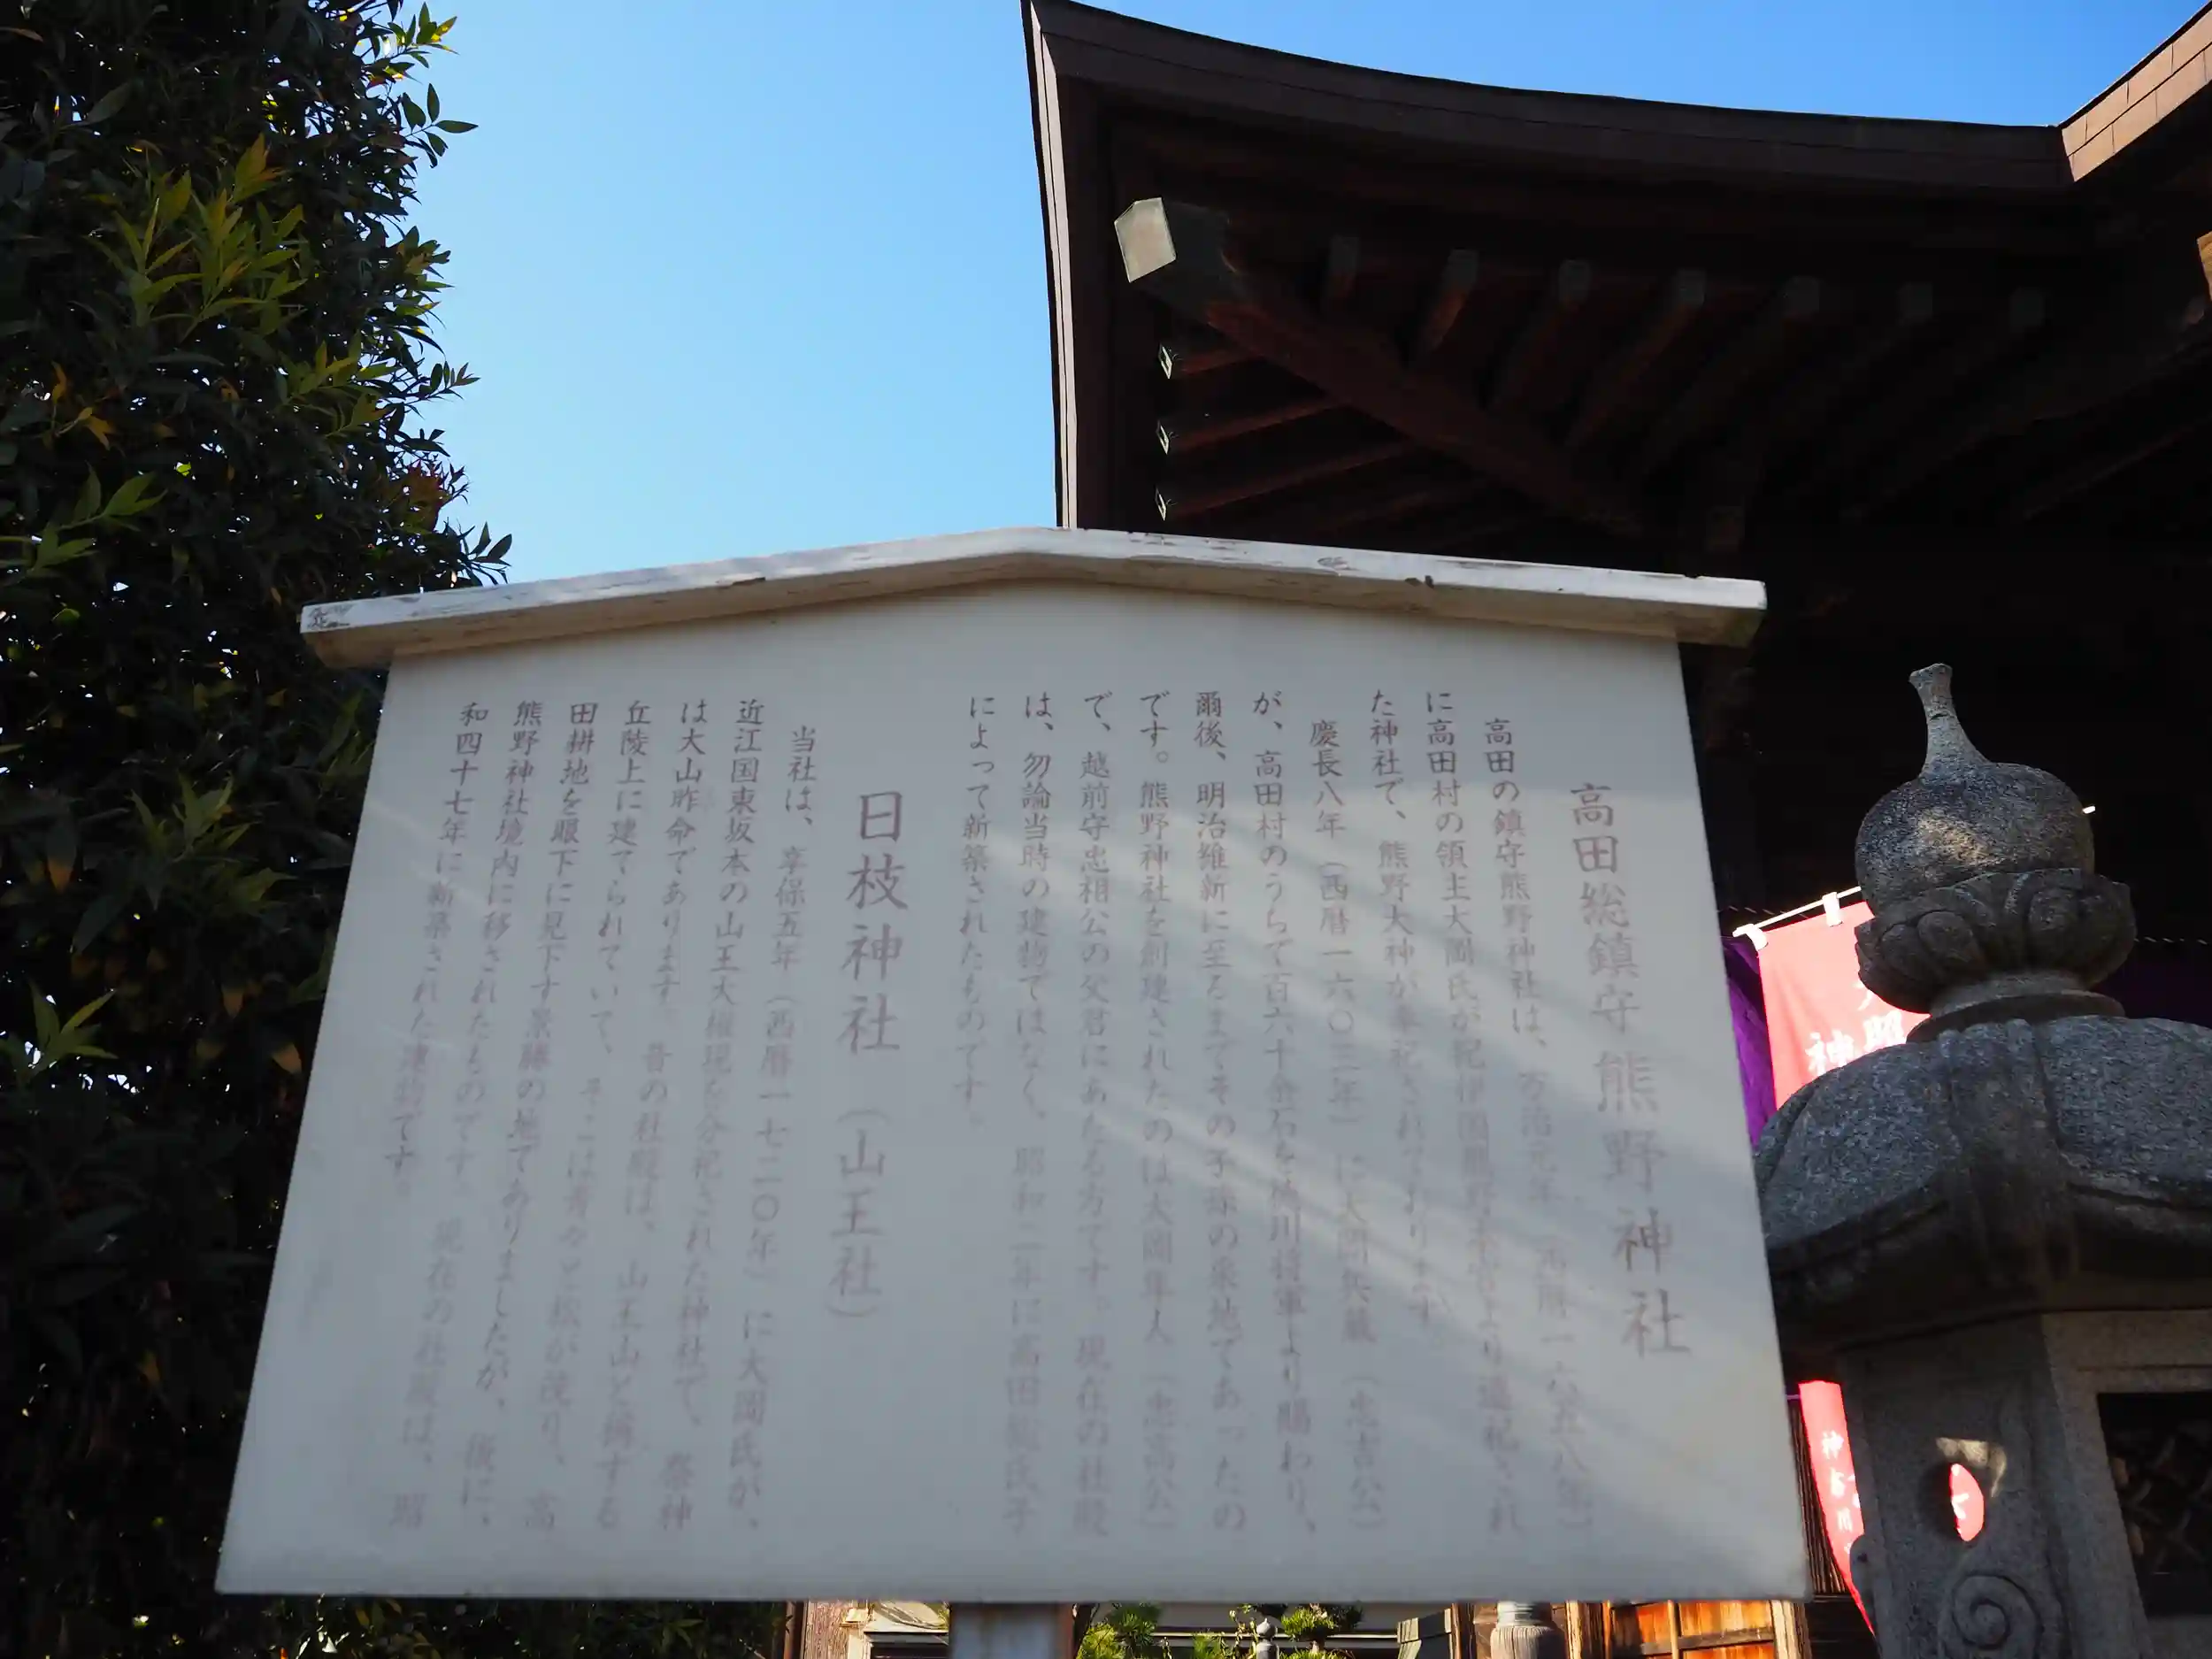 高田総鎮守 熊野神社
高田の鎮守熊野神社は、万治元年（西暦一六五八年）
に高田村の領主大岡氏が紀伊国熊野本宮より遷祀され
た神社で、熊野大神が奉祀されております。
慶長八年（西暦一六〇三年）に大岡兵蔵（忠吉公）
が、高田村のうちで百六十余石を徳川将軍より賜わり、
爾後、明治維新に至るまでその子孫の采地であったの
です。熊野神社を創建されたのは大岡隼人（忠高公）
で、越前守忠相公の父君にあたる方です。現在の社殿
は、勿論当時の建物ではなく、昭和二年に高田総氏子
によって新築されたものです。
日枝神社（山王社）
当社は、享保五年（西暦一七二〇年）に大岡氏が、
近江国東坂本の山王大権現を分祀された神社で、祭神
は大山昨命であります。昔の社殿は、山王山と称する
丘陵上に建てられていて、そこは青々と松が茂り、高
田耕地を眼下に見下す景勝の地でありましたが、後に、
熊野神社境内に移されたものです。現在の社殿は、昭
和四十七年に新築された建物です。
神
神奈川